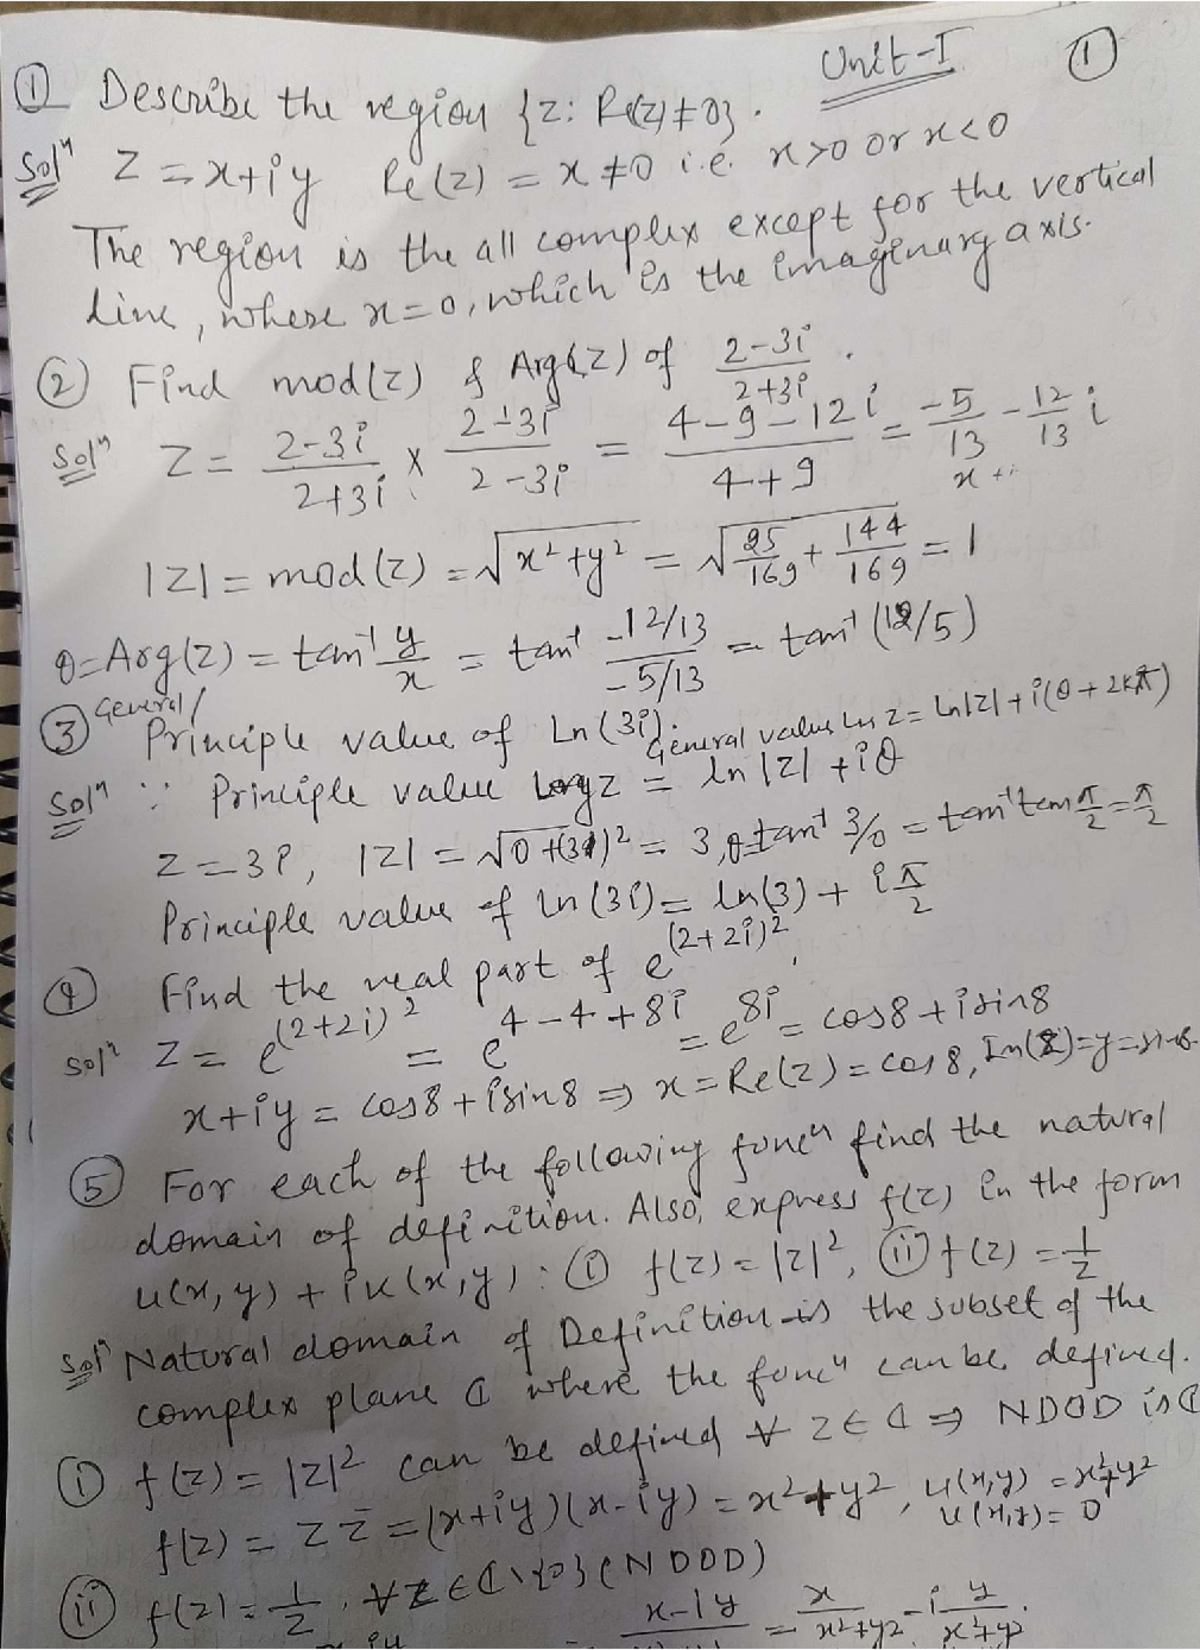 Unit-I ①
① Describe the region {z: Re(z)≠0}.
Solⁿ z = x+iy Re(z) = x ≠0 i.e. x>0 or x<0
The region is the all complex except for the vertical
line, where x=0, which is the imaginary axis.
② Find mod(z) & Arg(z) of (2-3i)/(2+3i).
Solⁿ z = (2-3i)/(2+3i) × (2-3i)/(2-3i) = (4-9-12i)/(4+9) = -5/13 - 12/13 i
x +i
|z| = mod(z) = √(x²+y²) = √(25/169 + 144/169) = 1
θ=Arg(z) = tan⁻¹ y/x = tan⁻¹ (-12/13)/(-5/13) = tan⁻¹ (12/5)
③ General/
Principle value of Ln(3i). General value Ln z = ln|z| + i(θ+2kπ)
Solⁿ ∵ Principle value Log z = ln |z| + iθ
z = 3i, |z| = √(0+(3)²) = 3, θ=tan⁻¹ 3/0 = tan⁻¹ tan π/2 = π/2
Principle value of Ln(3i) = ln(3) + i π/2
④ Find the real part of e^(2+2i)².
Solⁿ z = e^(2+2i)² = e^(4-4+8i) = e^8i = cos8 + i sin8
x+iy = cos8 + i sin8 ⇒ x = Re(z) = cos 8, Im(z)=y=sin8.
⑤ For each of the following funcⁿ find the natural
domain of definition. Also, express f(z) in the form
u(x,y) + iv(x,y): ⓘ f(z) = |z|², ⓘⓘ f(z) = 1/z
Solⁿ Natural domain of Definition is the subset of the
complex plane ℂ where the funcⁿ can be defined.
ⓘ f(z) = |z|² can be defined ∀ z ∈ ℂ ⇒ NDOD is ℂ
f(z) = z z̄ = (x+iy)(x-iy) = x²+y², u(x,y) = x²+y²
v(x,y) = 0
ⓘⓘ f(z) = 1/z, ∀ z ∈ ℂ\{0} (NDOD)
x-iy = x/(x²+y²) - i y/(x²+y²).